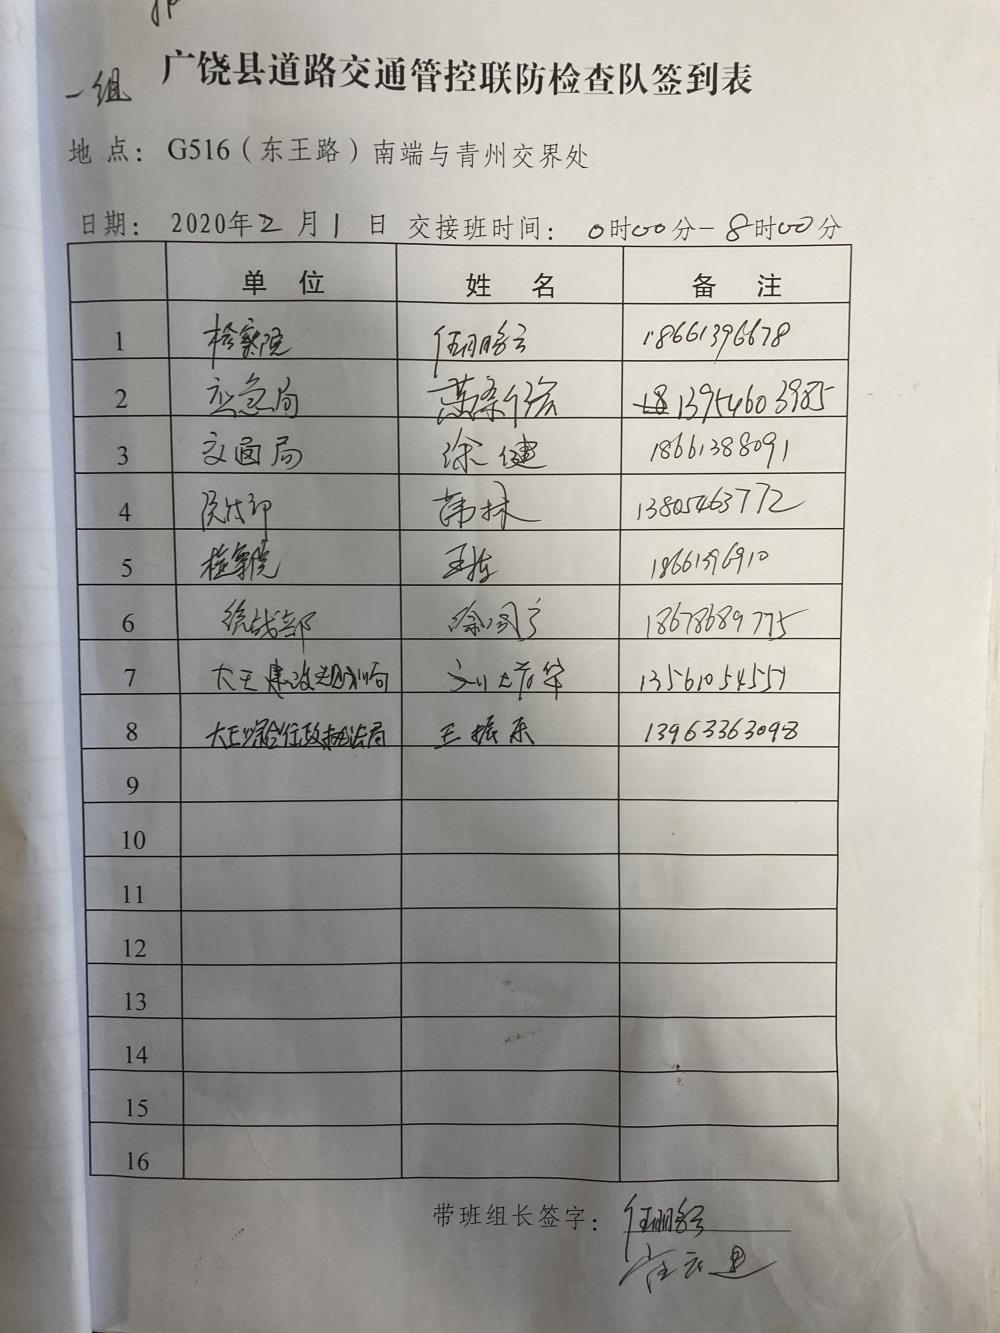 一组
广饶县道路交通管控联防检查队签到表
地 点： G516（东王路）南端与青州交界处
日期： 2020年2月1日 交接班时间： 0时00分－8时00分
单 位 姓 名 备 注
1 检察院 18661396678
2 应急局 13954603985
3 交通局 徐健 18661388091
4 韩林 13805463772
5 检察院 王栋 18661396910
6 统战部 18678689775
7 13561054551
8 大王综合行政执法局 王振东 13963363098
9
10
11
12
13
14
15
16
带班组长签字：